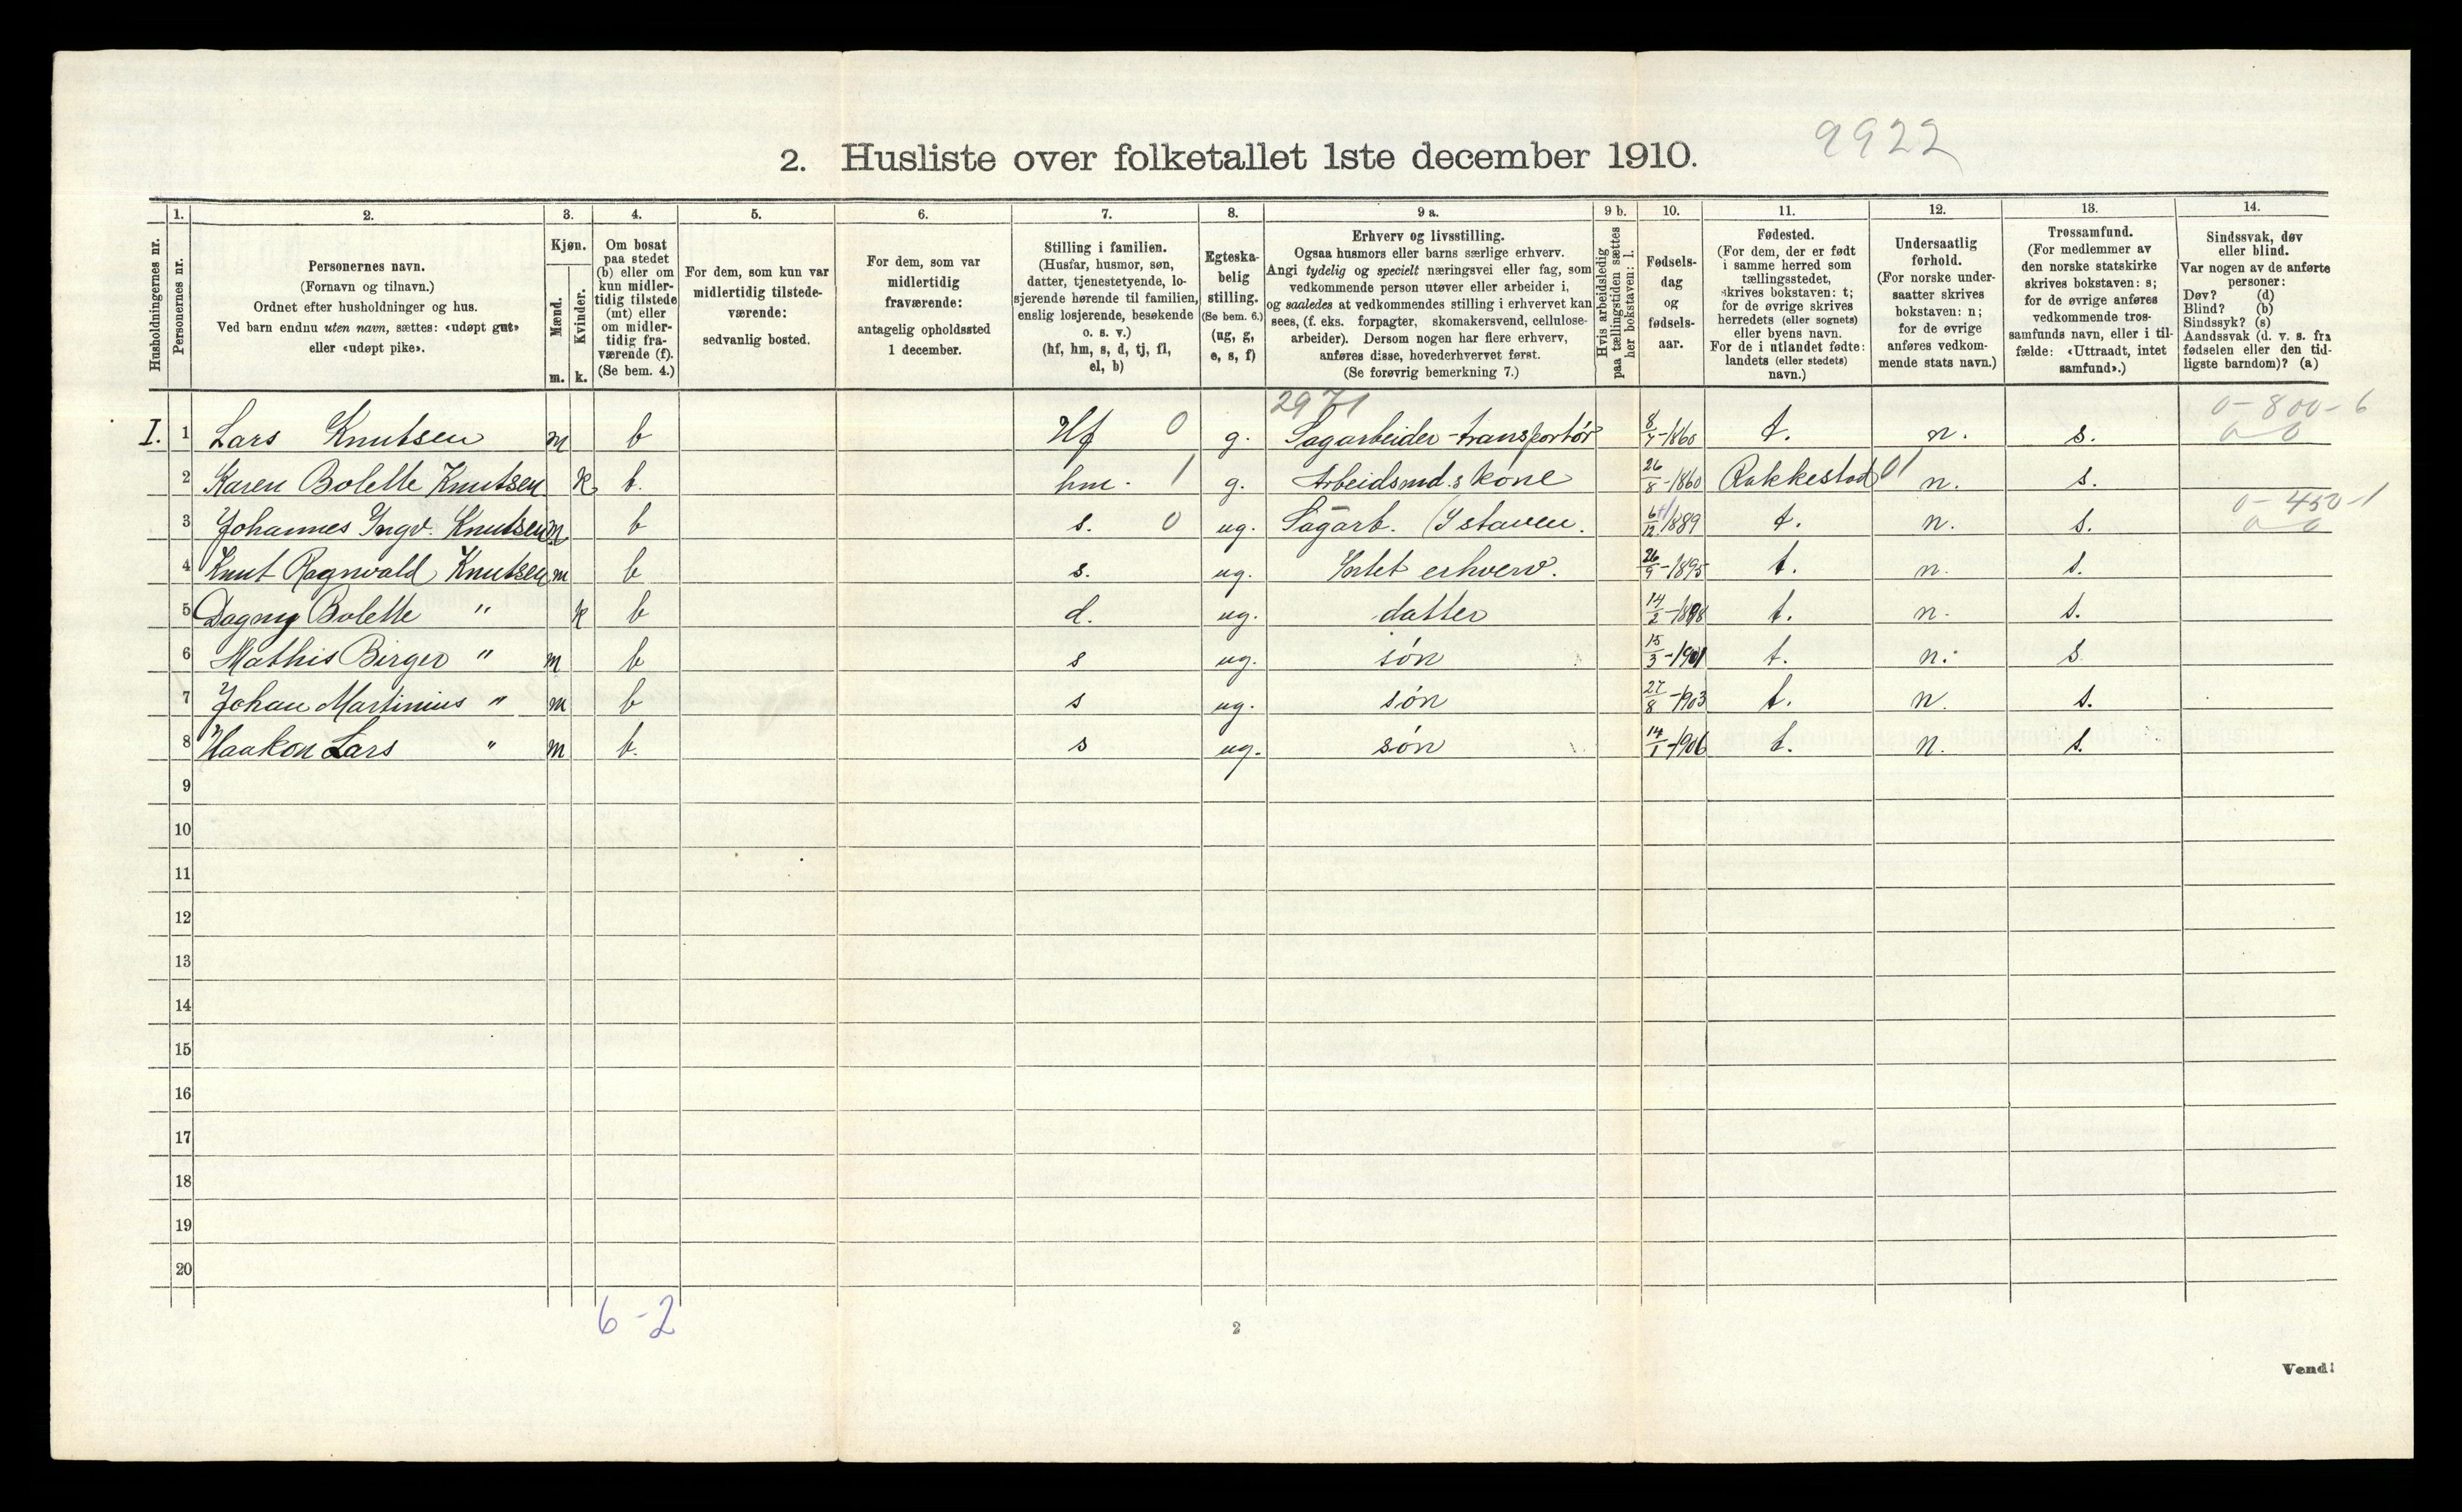 2. Husliste over folketallet 1ste december 1910.
9922
Husholdningernes nr.
1. Personernes nr.
2. Personernes navn.
(Fornavn og tilnavn.)
Ordnet efter husholdninger og hus.
Ved barn endnu uten navn, sættes: «udøpt gut»
eller «udøpt pike».
3. Kjøn.
Mænd. m.
Kvinder. k.
4. Om bosat
paa stedet
(b) eller om
kun midler-
tidig tilstede
(mt) eller
om midler-
tidig fra-
værende (f).
(Se bem. 4.)
5. For dem, som kun var
midlertidig tilstede-
værende:
sedvanlig bosted.
6. For dem, som var
midlertidig
fraværende:
antagelig opholdssted
1 december.
7. Stilling i familien.
(Husfar, husmor, søn,
datter, tjenestetyende, lo-
sjerende hørende til familien,
enslig losjerende, besøkende
o. s. v.)
(hf, hm, s, d, tj, fl,
el, b)
8. Egteska-
belig
stilling.
(Se bem. 6.)
(ug, g,
e, s, f)
9 a. Erhverv og livsstilling.
Ogsaa husmors eller barns særlige erhverv.
Angi tydelig og specielt næringsvei eller fag, som
vedkommende person utøver eller arbeider i,
og saaledes at vedkommendes stilling i erhvervet kan
sees, (f. eks. forpagter, skomakersvend, cellulose-
arbeider). Dersom nogen har flere erhverv,
anføres disse, hovederhvervet først.
(Se forøvrig bemerkning 7.)
9 b. Hvis arbeidsledig
paa tællingstiden sættes
her bokstaven: l.
10. Fødsels-
dag
og
fødsels-
aar.
11. Fødested.
(For dem, der er født
i samme herred som
tællingsstedet,
skrives bokstaven: t;
for de øvrige skrives
herredets (eller sognets)
eller byens navn.
For de i utlandet fødte:
landets (eller stedets)
navn.)
12. Undersaatlig
forhold.
(For norske under-
saatter skrives
bokstaven: n;
for de øvrige
anføres vedkom-
mende stats navn.)
13. Trossamfund.
(For medlemmer av
den norske statskirke
skrives bokstaven: s;
for de øvrige anføres
vedkommende tros-
samfunds navn, eller i til-
fælde: «Uttraadt, intet
samfund».)
14. Sindssvak, døv
eller blind.
Var nogen av de anførte
personer:
Døv? (d)
Blind? (b)
Sindssyk? (s)
Aandssvak (d. v. s. fra
fødselen eller den tid-
ligste barndom)? (a)
2971 0-800-6
I. 1 Lars Knutsen m b Hf 0 g. Sagarbeider-transportør 8/7-1860 t. n. s. 0 0
2 Karen Bolette Knutsen k b. hm. 1 g. Arbeidsmd.s kone 26/8-1860 Rakkestad 01 n. s.
0-450-1
3 Johannes Ingv. Knutsen m b s. 0 ug. Sagarb. (I staven. 6/12 1889 t. n. s. 0 0
4 Knut Ragnvald Knutsen m b s. ug. Intet erhverv. 26/9-1895 t. n. s.
5 Dagny Bolette " k b d. ug. datter 14/2-1898 t. n. s.
6 Mathis Birger " m b s ug. søn 15/3-1901 t. n. s
7 Johan Martinius " m b s ug. søn 27/8-1903 t. n. s.
8 Haakon Lars " m b. s ug. søn 14/1-1906 t. n. s.
9
10
11
12
13
14
15
16
17
18
19
20
6-2
2
Vend!